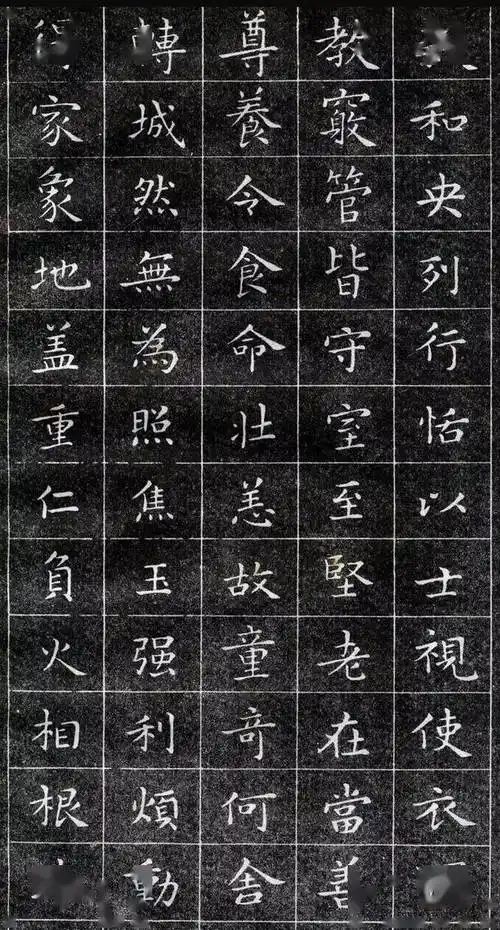 和央列行恬以士視使衣
教窮管皆守室至堅老在當善
尊養令食命壯恙故童奇何舍
轉城然無為照焦玉强利煩動
家象地盖重仁負火相根